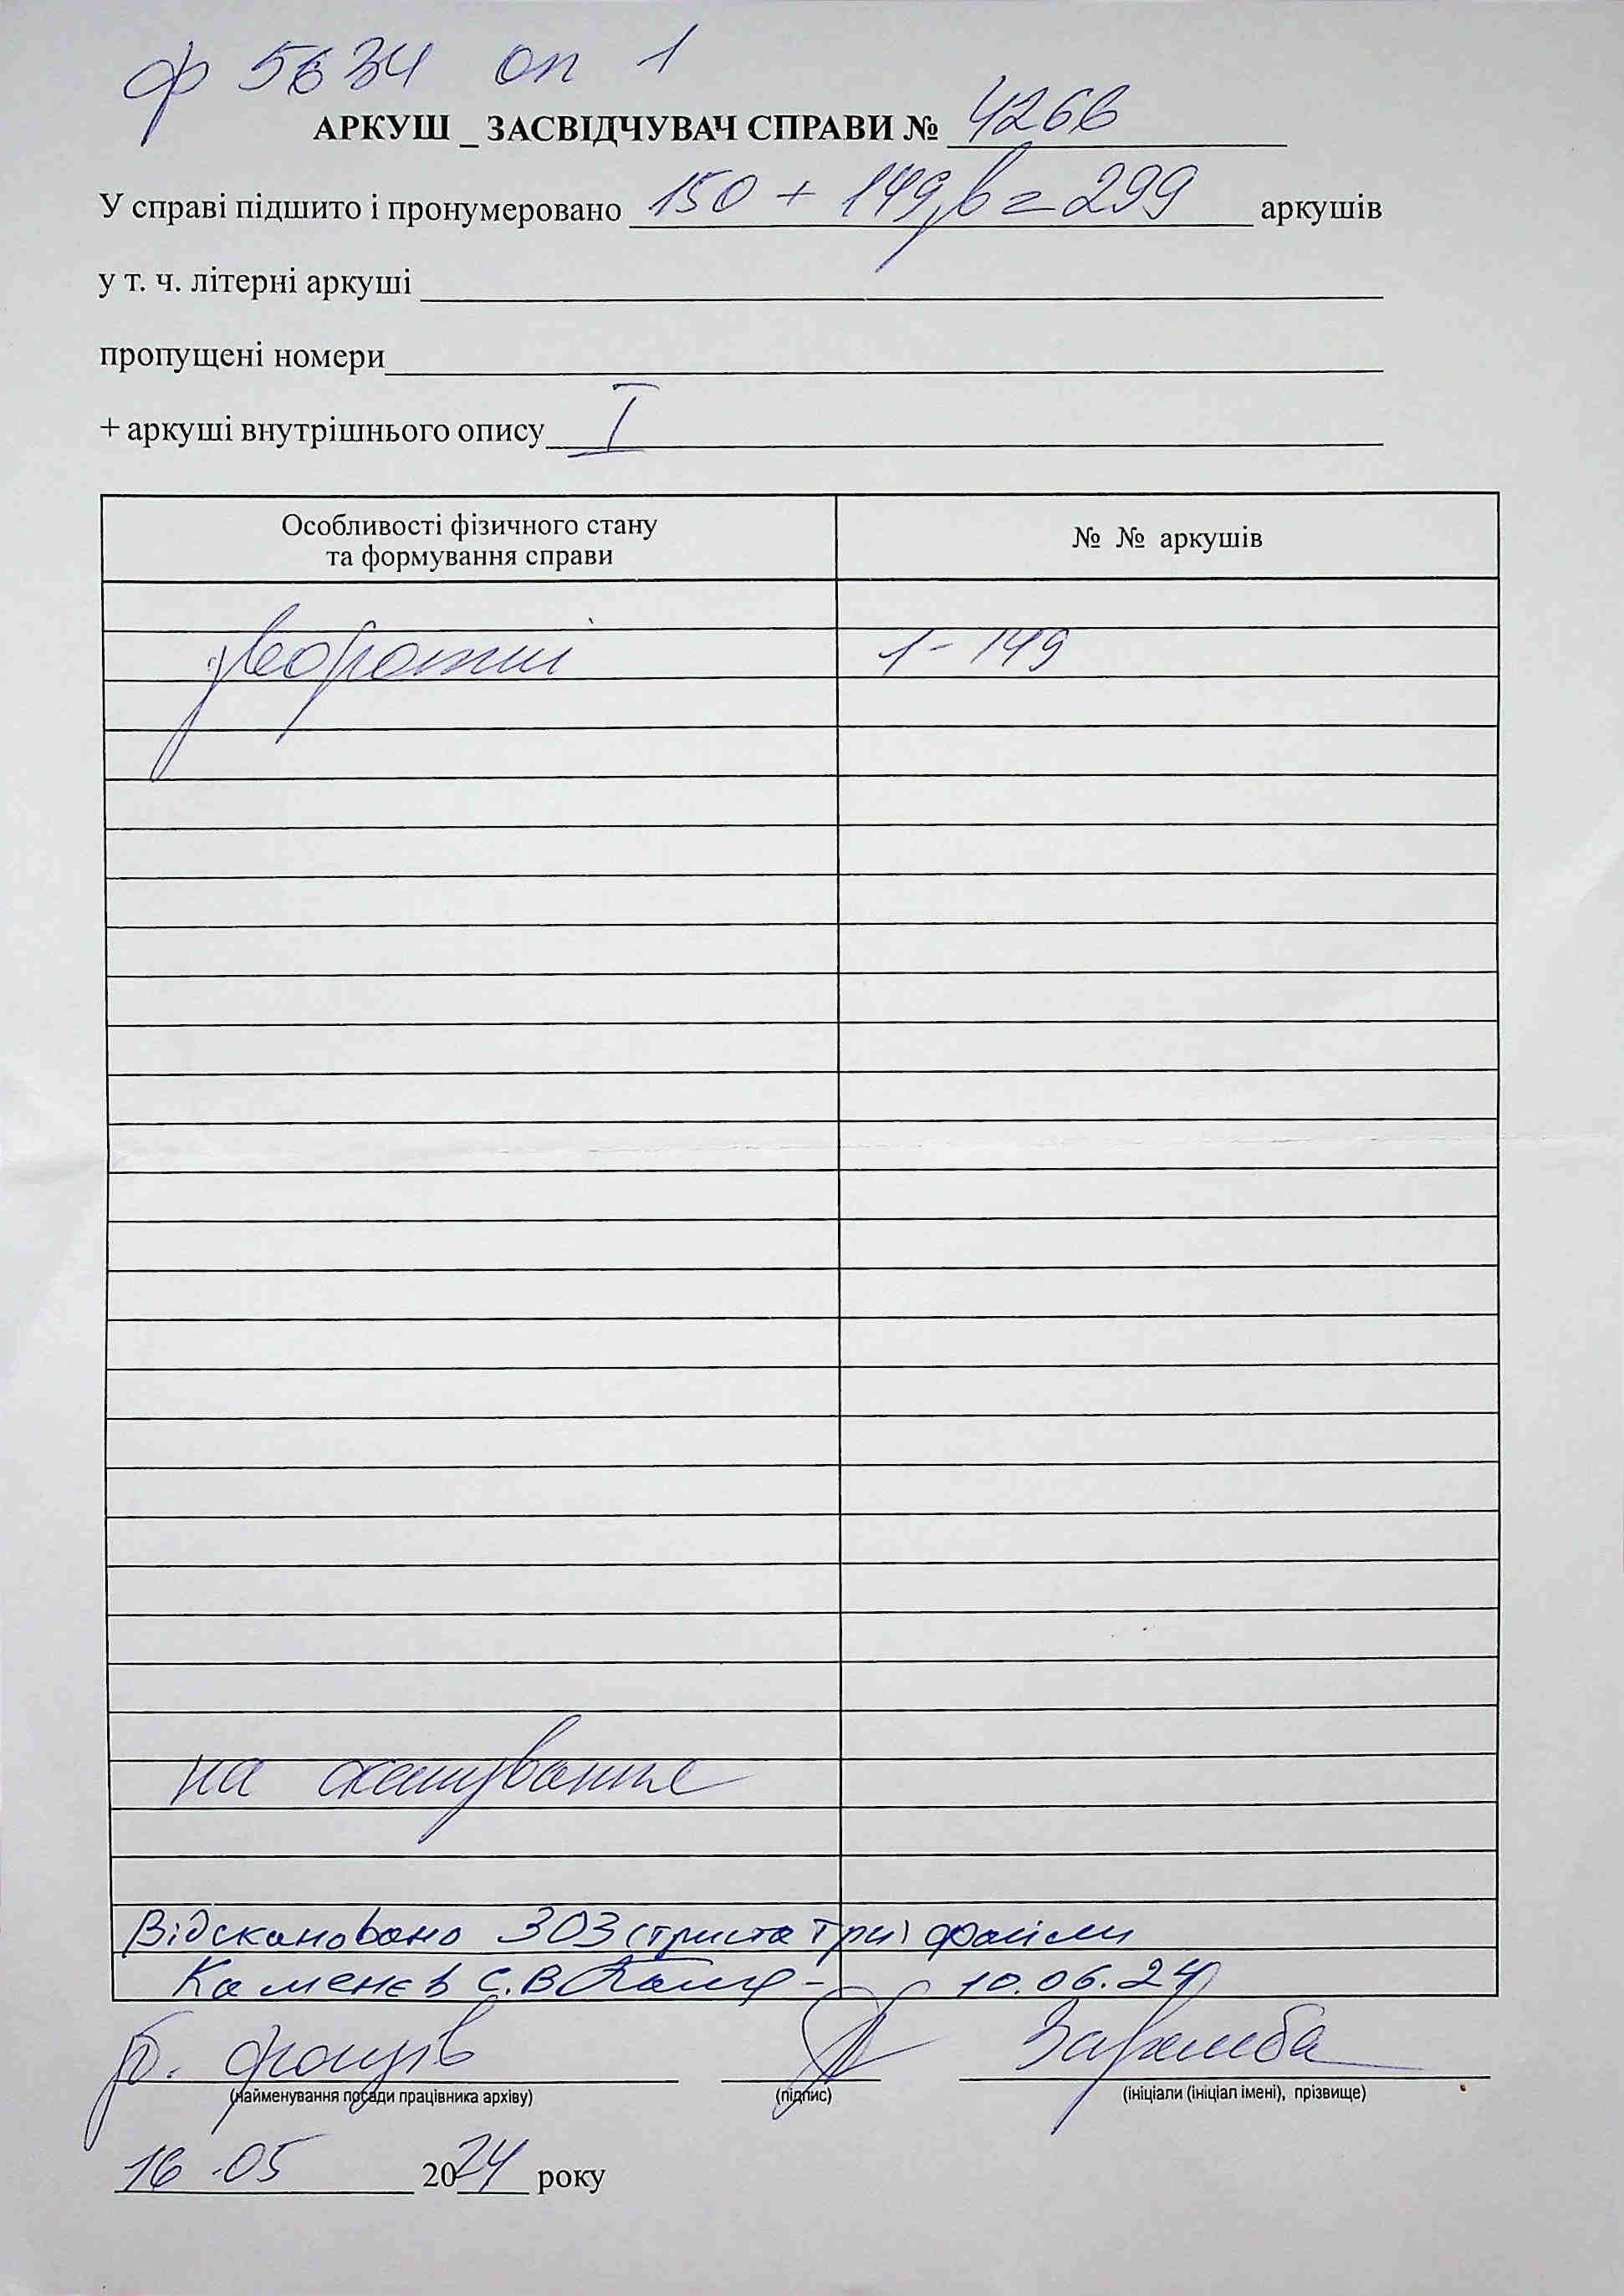 ф 5634 оп 1
АРКУШ _ ЗАСВІДЧУВАЧ СПРАВИ № 4266
У справі підшито і пронумеровано 150 + 149зв = 299 аркушів
у т. ч. літерні аркуші
пропущені номери
+ аркуші внутрішнього опису I
Особливості фізичного стану
та формування справи
№ № аркушів
зворотні 1-149
на сканування
Відскановано 303 (триста три) файли
Каменєв С.В. 10.06.24
(найменування посади працівника архіву)
(підпис)
(ініціали (ініціал імені), прізвище)
16.05 2024 року